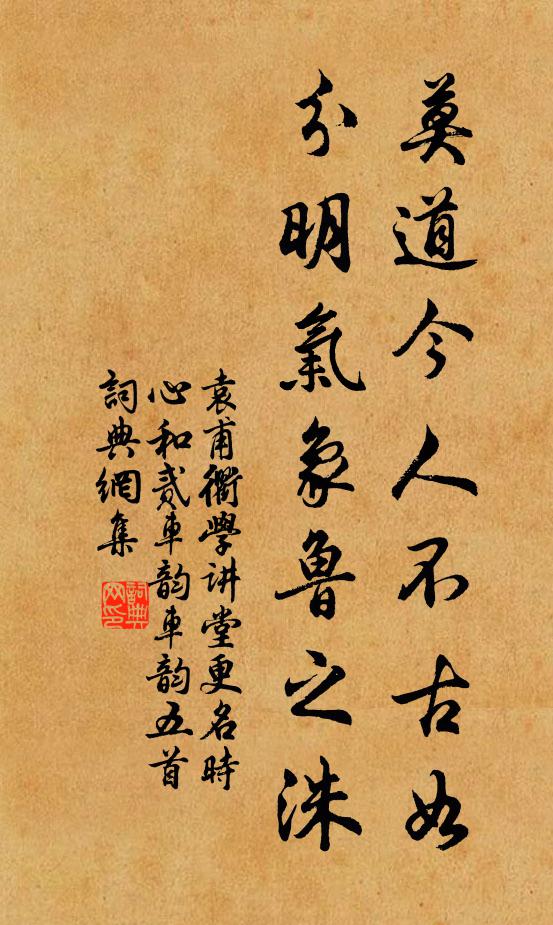 莫道今人不古如
分明氣象魯之洙
袁甫衢學讲堂更名時
心和貳車韵車韵五首
詞典網集
詞典
网印